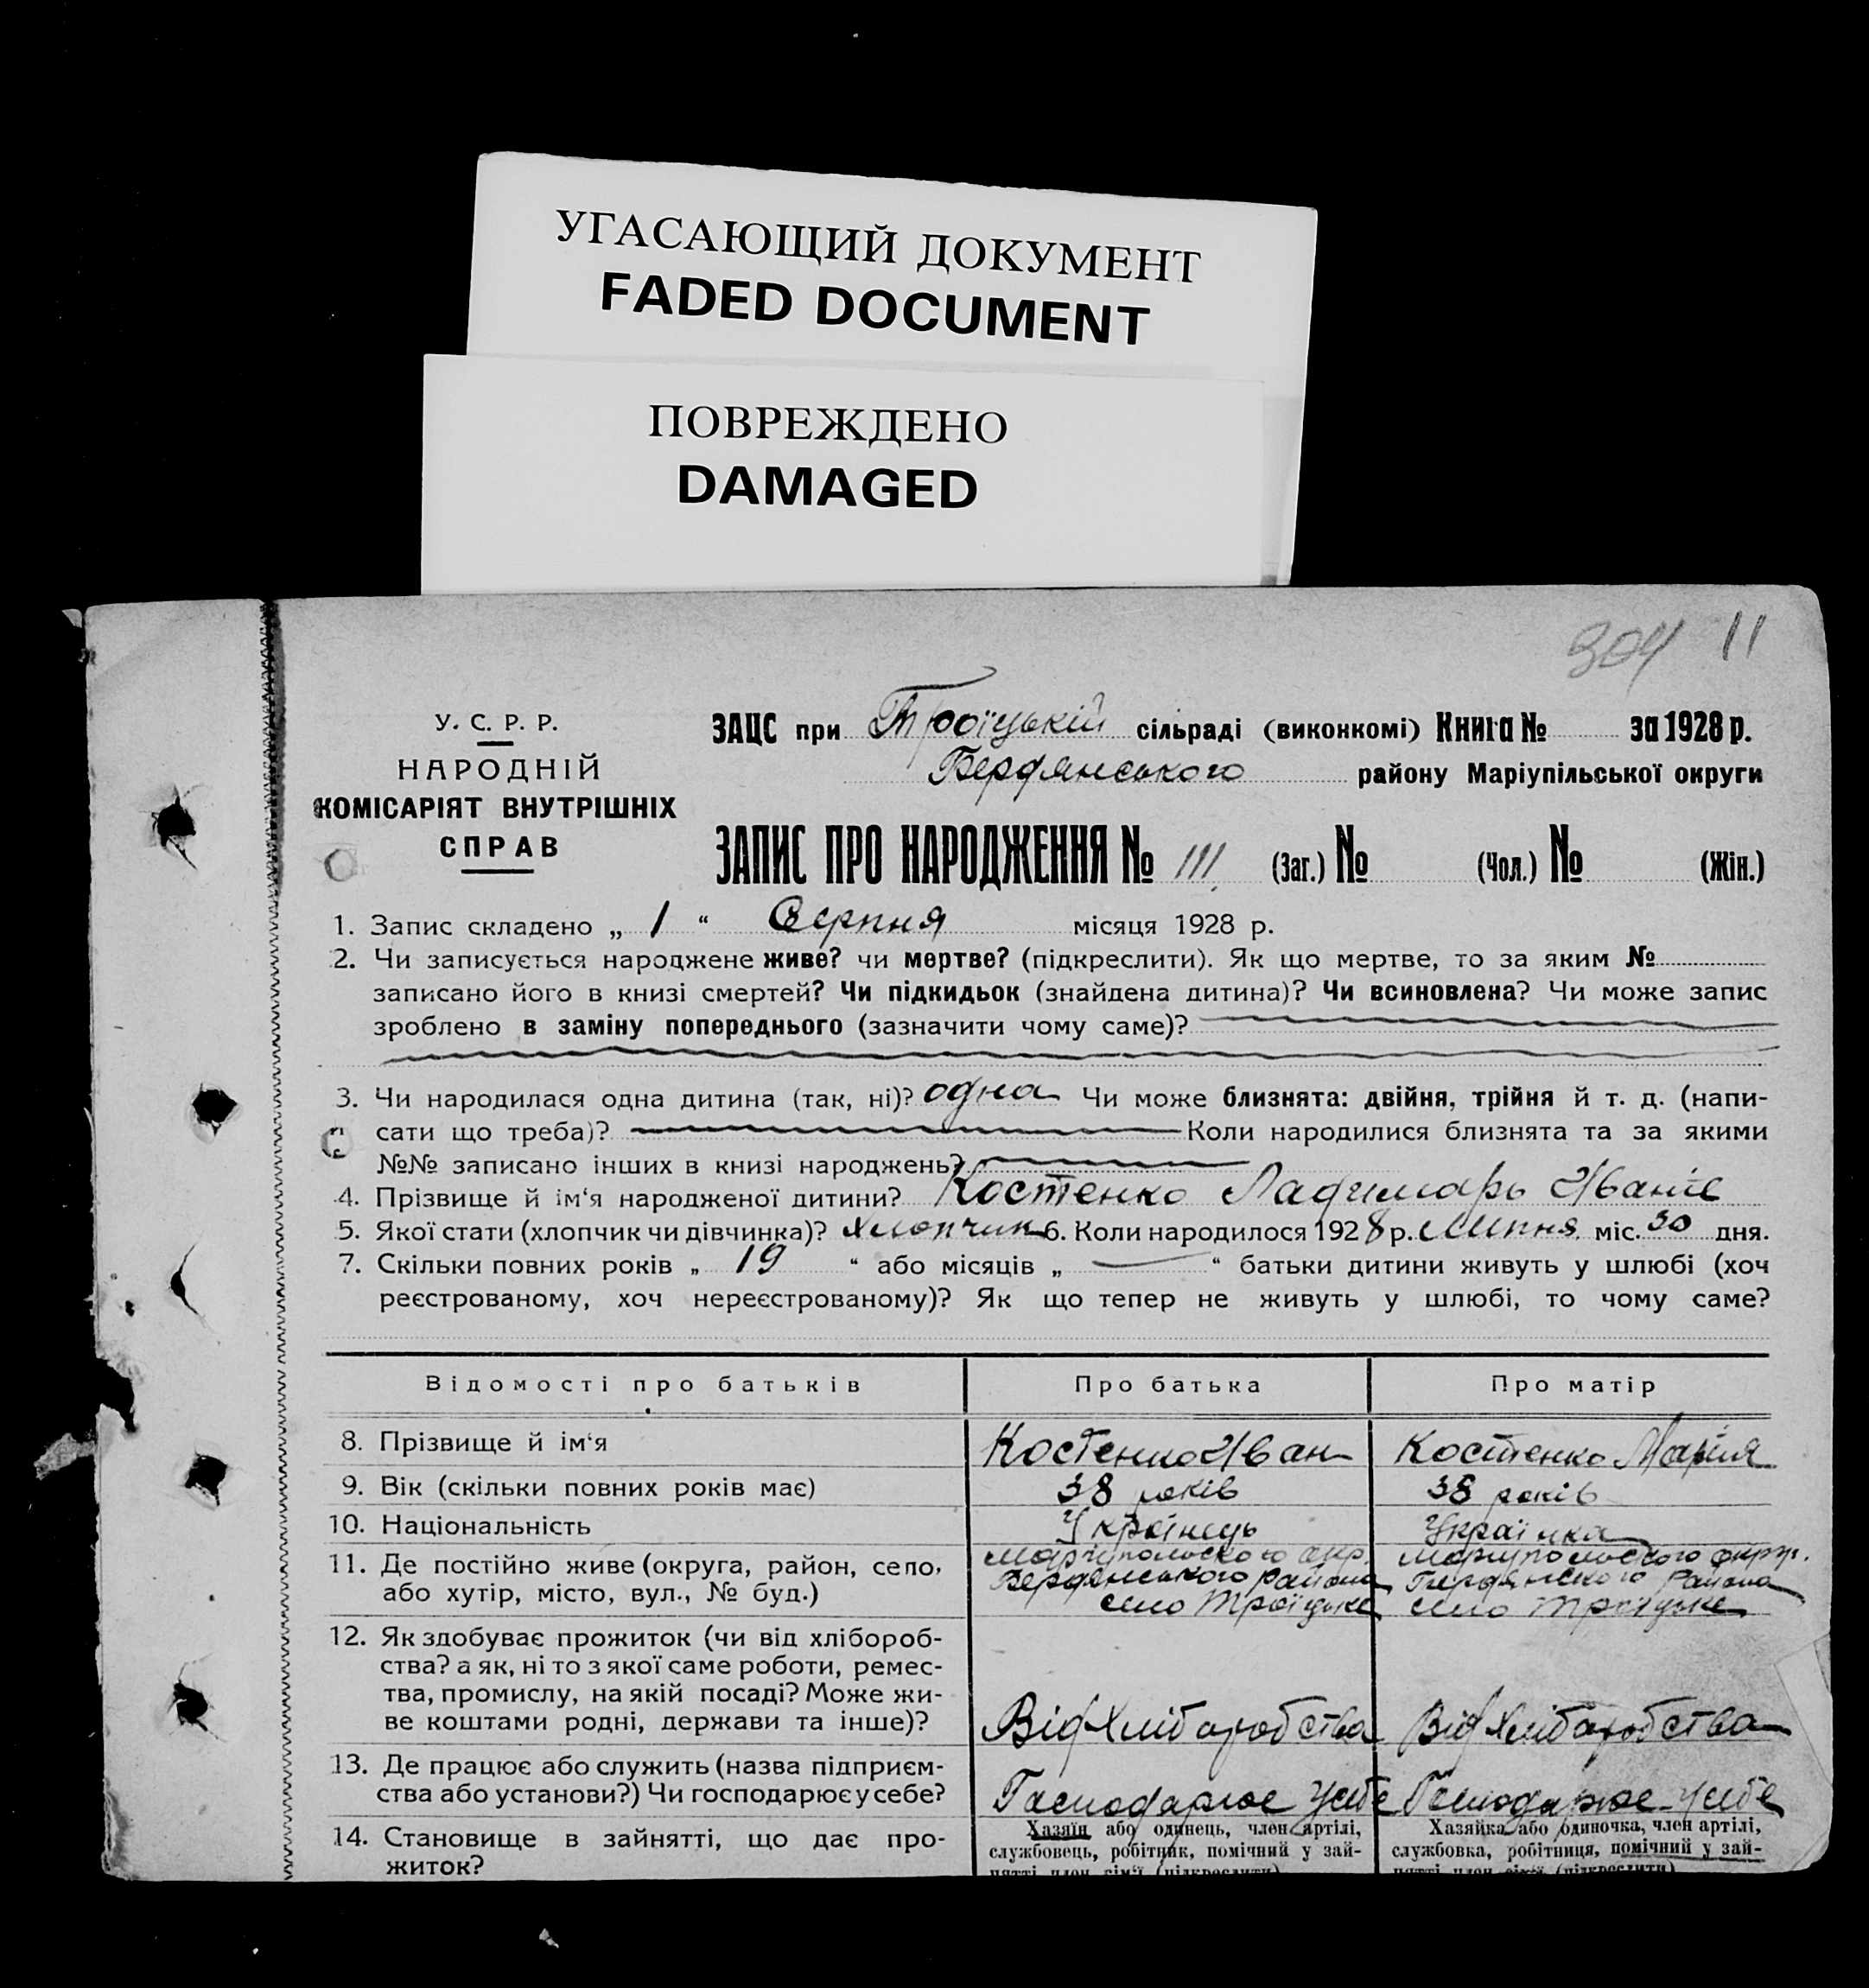 УГАСАЮЩИЙ ДОКУМЕНТ
FADED DOCUMENT
ПОВРЕЖДЕНО
DAMAGED
304 11
У. С. Р. Р.
НАРОДНІЙ
КОМІСАРІЯТ ВНУТРІШНІХ
СПРАВ
ЗАЦС при Троїцькій сільраді (виконкомі) Книга № за 1928 р.
Бердянського району Маріупільської округи
ЗАПИС ПРО НАРОДЖЕННЯ № 111 (Заг.) № (Чол.) № (Жін.)
1. Запис складено „ 1 “ Серпня місяця 1928 р.
2. Чи записується народжене живе? чи мертве? (підкреслити). Як що мертве, то за яким №
записано його в книзі смертей? Чи підкидьок (знайдена дитина)? Чи всиновлена? Чи може запис
зроблено в заміну попереднього (зазначити чому саме)?
3. Чи народилася одна дитина (так, ні)? одна Чи може близнята: двійня, трійня й т. д. (напи-
сати що треба)? Коли народилися близнята та за якими
№№ записано інших в книзі народжень?
4. Прізвище й ім‘я народженої дитини? Костенко Ладимарь Іваніє
5. Якої стати (хлопчик чи дівчинка)? хлопчик 6. Коли народилося 1928 р. Липня міс. 30 дня.
7. Скільки повних років „ 19 “ або місяців „ — “ батьки дитини живуть у шлюбі (хоч
реєстрованому, хоч нереєстрованому)? Як що тепер не живуть у шлюбі, то чому саме?
Відомості про батьків Про батька Про матір
8. Прізвище й ім‘я Костенко Иван Костенко Марія
9. Вік (скільки повних років має) 38 років 38 років
10. Національність Українець Українка
11. Де постійно живе (округа, район, село,
або хутір, місто, вул., № буд.)
Маріупольского окр. Бердянського района село Троїцьке
Маріупольского округ. Бердянского района село Троїцьке
12. Як здобуває прожиток (чи від хлібороб-
ства? а як, ні то з якої саме роботи, ремес-
тва, промислу, на якій посаді? Може жи-
ве коштами родні, держави та інше)? Від Хлібаробства Від Хлібаробства
13. Де працює або служить (назва підприєм-
ства або установи?) Чи господарює у себе? Господарює у себе Господарює у себе
14. Становище в зайнятті, що дає про-
житок?
Хазяїн або одинець, член артілі,
службовець, робітник, помічний у зай-
нятті член сім‘ї (підкреслити)
Хазяйка або одиночка, член артілі,
службовка, робітниця, помічний у зай-
нятті член сім‘ї (підкреслити)